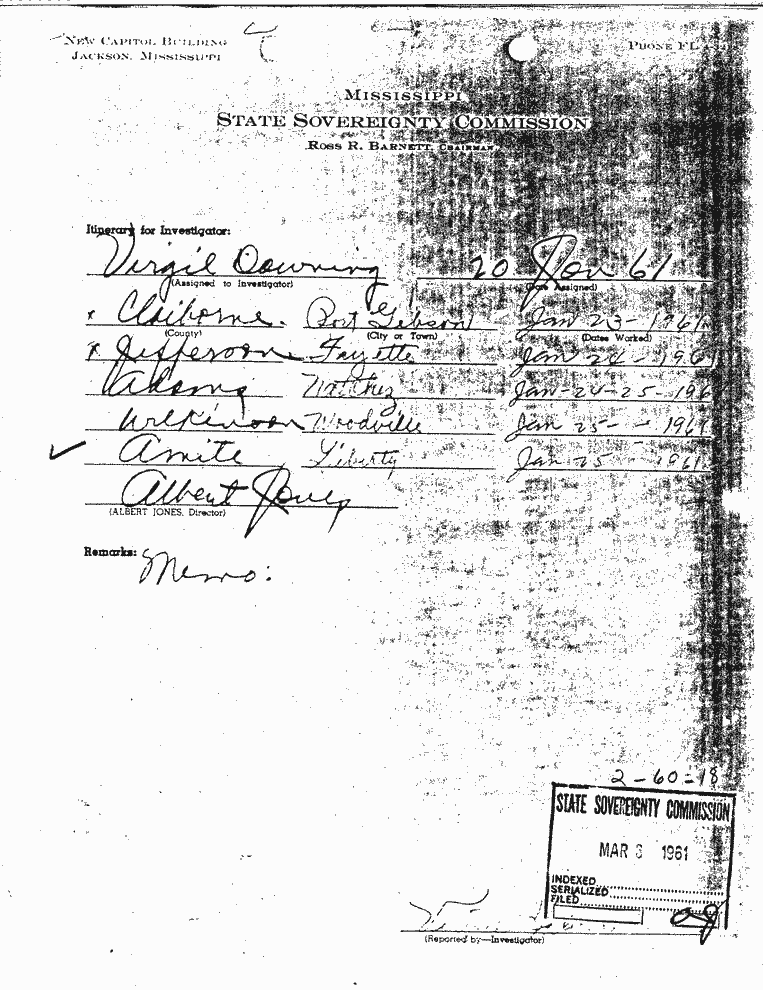 NEW CAPITOL BUILDING
JACKSON, MISSISSIPPI
PHONE FL
MISSISSIPPI
STATE SOVEREIGNTY COMMISSION
ROSS R. BARNETT, CHAIRMAN
Itinerary for Investigator:
Virgil Downing 20 Jan 61
(Assigned to Investigator) (Date Assigned)
x Claiborne. Port Gibson Jan 23-1961
(County) (City or Town) (Dates Worked)
x Jefferson Fayette Jan 24-1961
Adams Natchez Jan-24-25-196
Wilkinson Woodville Jan 25- - 1961
✓ Amite Liberty Jan 25 - 1961
Albert Jones
(ALBERT JONES, Director)
Remarks: Memo:
2-60-18
STATE SOVEREIGNTY COMMISSION
MAR 3 1961
INDEXED
SERIALIZED
FILED
(Reported by—Investigator)